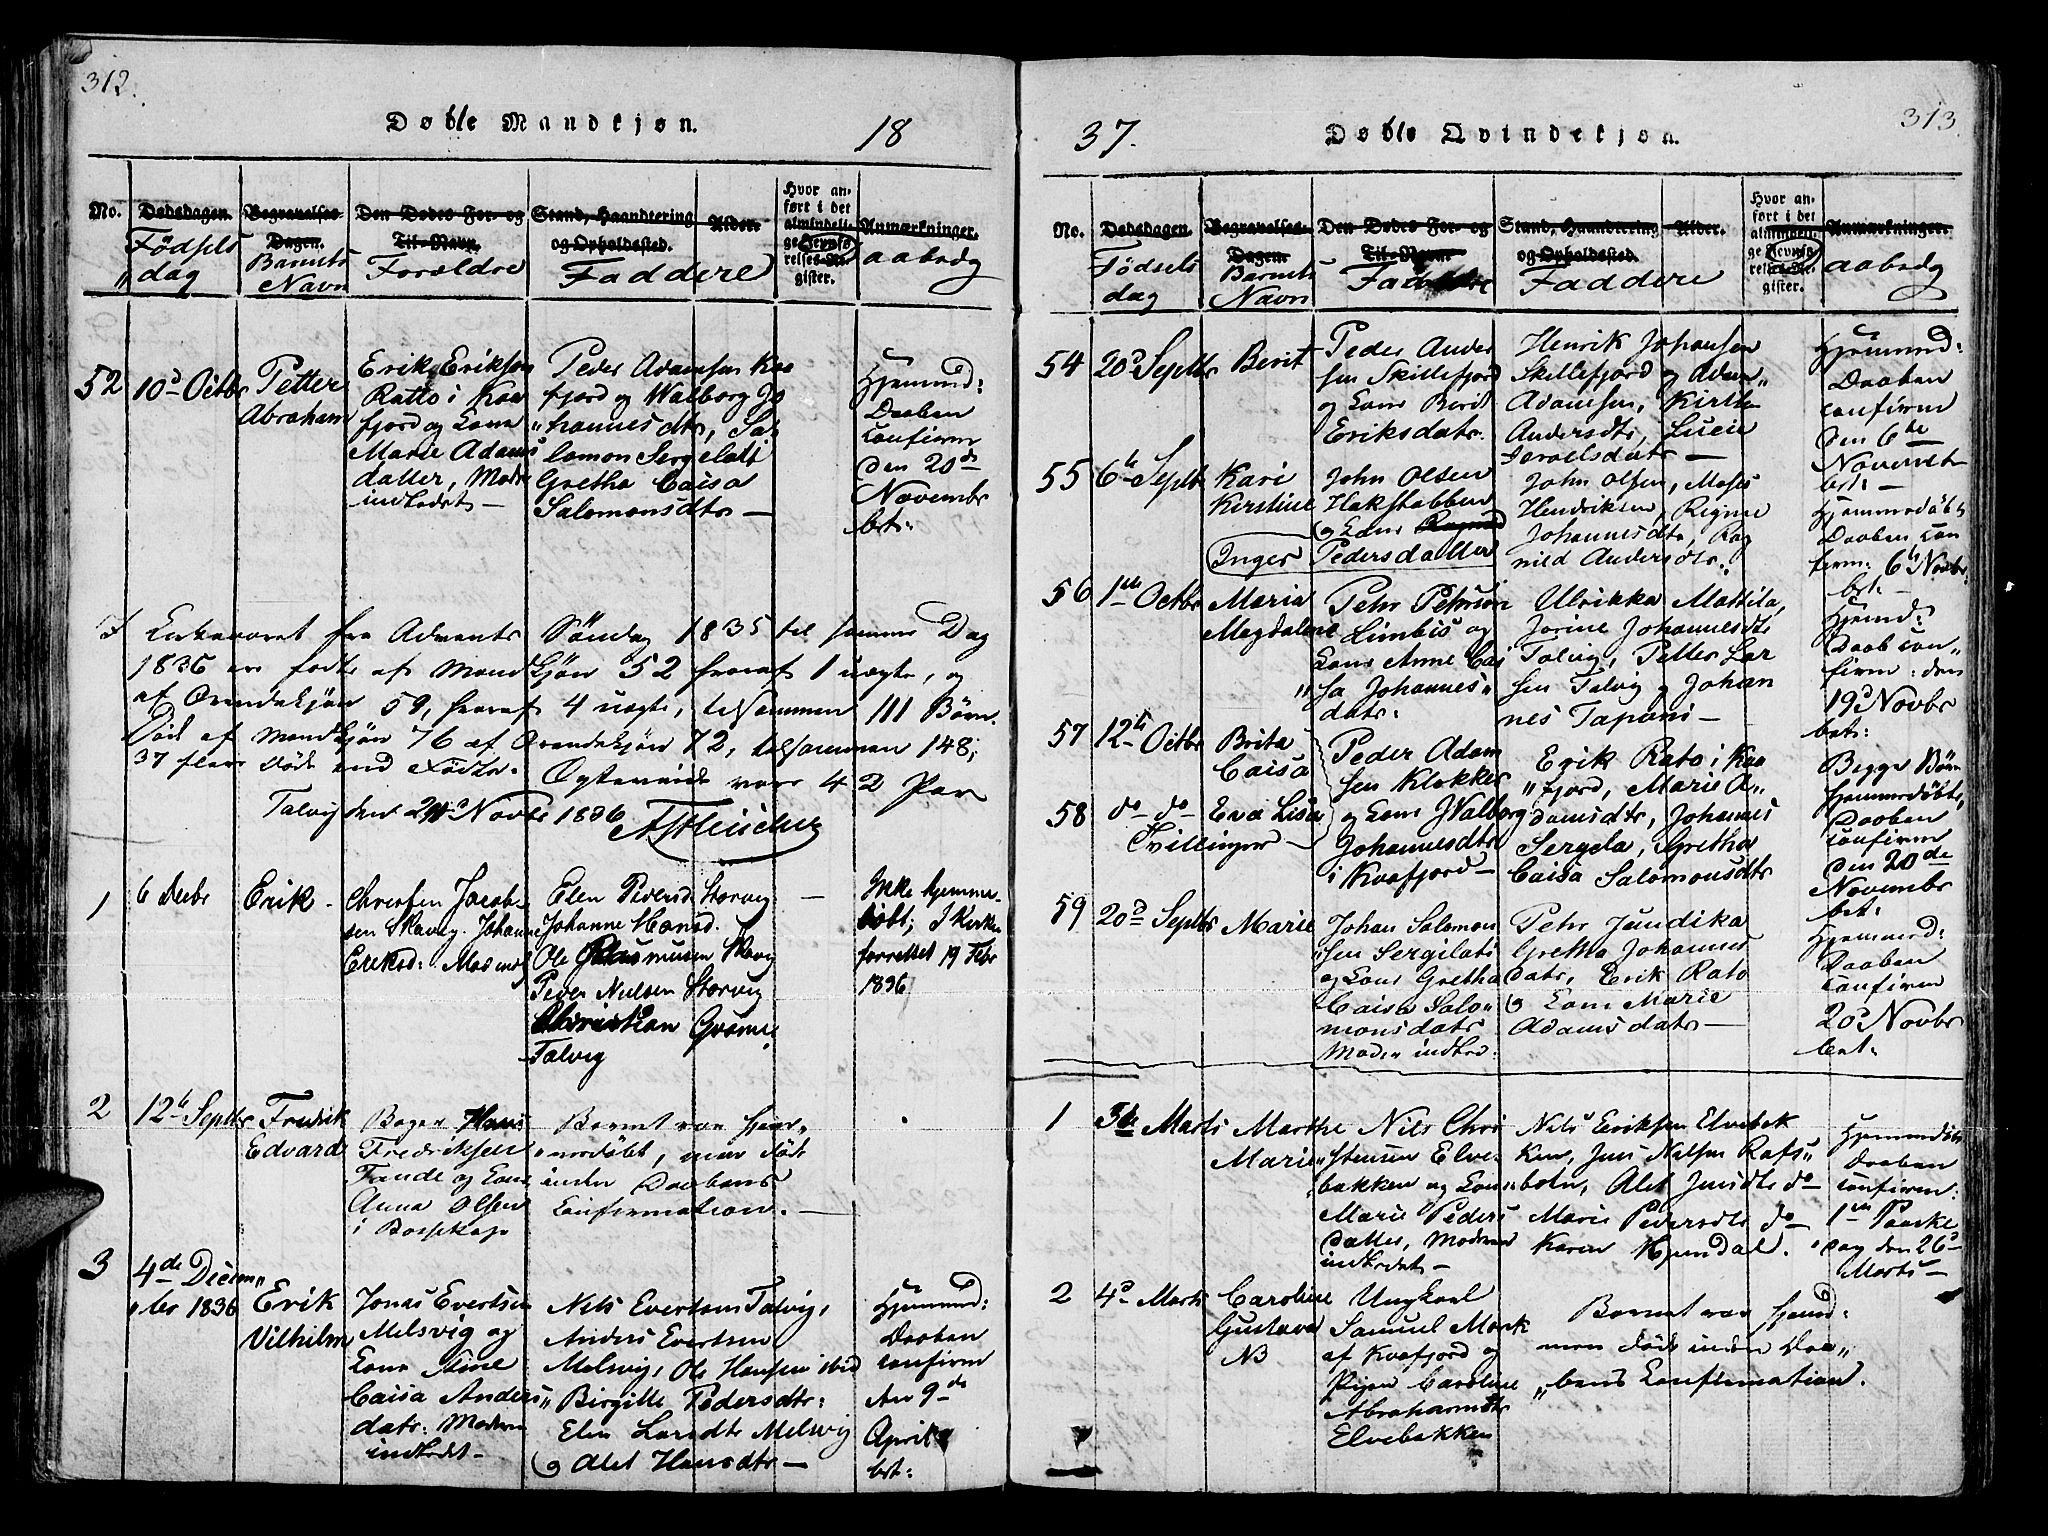 312.
Døble Mandkjøn.
18
No.
Dødsdagen.
Fødsels
dag
Begravelses-
Dagen.
Barnets
Navn
Den Dødes For- og
Til-Navn.
Forældre
Stand, Haandtering
og Opholdssted.
Faddere
Alder.
Hvor an-
ført i det
almindeli-
ge Jevnfø-
relses-Re-
gister.
Anmærkninger.
aabsdg
52
10d Octbr
Petter
Abraham
Erik Eriksen
Ratto i Kaa
fjord og Kone
Marie Adams
datter, Modr
indledet —
Peder Adamsen Kaa
fjord og Walborg Jo
hannesdtr, Sa-
lomon Sergelati
Gretha Caisa
Salomonsdtr —
Hjemmed:
Daaben
confirm
den 20de
Novembr
bet:
I Kirkeaaret fra Advents Søndag 1835 til samme Dag
1836 ere fødte af Mandkjøn 52 hvoraf 1 uægte, og
af Qvindekjøn 59, hvoraf 4 uægte, tilsammen 111 Børn.
Død af Mandkjøn 76 af Qvindekjøn 72, tilsammen 148;
37 flere døde end Fødte. Ægteviede vare 42 Par
Talvig den 24d Novbr 1836
1
6 Decbr
Erik -
Christen Jacob-
sen Skavig. Johanne
Eriksd: Mod indl
Elen Pedersd Storvig
Johanne Hansd.
Ole Rasmusen Skavig
Peder Nielsen Storvig
Christian Grame
Talvig
—
Ikke hjemme-
døbt; I Kirken
forrettet 19 Febr
1836
2
12te Septbr
Fredrik
Edvard
Bager Hans
Fredriksen
Fande og Kone
Anna Olsen
i Bossekop
Barnet var hjem-
medøbt, men døde
inden Daabens
Confirmation. —
3
4de Decem
ber 1836
Erik
Vilhelm
Jonas Evertsen
Melsvig og
Kone Stine
Caisa Anders
datr: Modren
indledet —
Nils Evertsen Talvig,
Anders Evertsen
Melsvig, Ole Hansen ibid
Birgitte Pedersdtr:
Elen Larsdtr Melsvig
og Alet Hansdtr —
Hjemmed:
Daaben
confirm
den 9de
April
bet:
37.
Døble Qvindekjøn.
313
No.
Dødsdagen.
Fødsels
dag
Begravelses-
Dagen.
Barnets
Navn
Den Dødes For- og
Til-Navn.
Stand, Haandtering
og Opholdssted.
Faddere
Alder.
Hvor an-
ført i det
almindeli-
ge Jevnfø-
relses-Re-
gister.
Anmærkninger.
aabsdg
54
20d Septbr
Berit
Peder Ander
sen Skillefjord
og Kone Berit
Eriksdatr.
Henrik Johansen
Skillefjord og Adam
Adamsen, Kirsten
Andersdtr, Lucie
Israelsdatr —
Hjemmed:
Daaben
confirm
den 6te
Novem
bet: —
55
6te Septbr
Kari
Kirstine
John Olsen
Hakstabben
og Kone Ragnild
Inger Pedersdatter
John Olsen, Moses
Hendriksen, Regine
Johannesdtr, Rag
nild Andersdtr.
Hjemmedøbt
Daaben con
firm: 6te Novbr
bet: —
56
1ste Octbr
Maria
Magdalene
Pehr Pehrson
Limbis og
Kone Anne Cai
sa Johannes
datr:
Ulrikka Mattila,
Jorine Johannesdtr
Talvig, Petter Lar
sen Talvig og Johan
nes Tapani —
Hjemd:
Daab con
firm: den
19d Novbr
bet:
57
12te Octbr
Brita
Caisa
Peder Adam
sen Klokker
og Kone Walborg
Johannesdtr
i Kaafjord —
58
do do
Eva Lisa
Tvillinger —
Erik Rato i Kaa
fjord, Marie A
damsdtr, Johannes
Sergela, Gretha
Caisa Salomonsdtr
Begge Børn
hjemmedøbte,
Daaben
confirm
den 20de
Novembr
bet:
59
20d Septbr
Marie
Johan Salomon
sen Sergilati
og Kone Gretha
Caisa Salo
monsdatr
Moder indled:
Pehr Jundika
Gretha Johannes
datr, Erik Rato
og Kone Marie
Adamsdatr —
Hjemmed:
Daaben
confirm
20d Novbr
bet:
1
3die Marts
Marthe
Marie
Nils Chri
stensen Elve
bakken og Kone
Marie Peders
datter, Modren
indledet —
Nils Eriksen Elvebak
ken, Jens Nilsen Rafs
botn, Alet Jensdtr do
Marie Pedersdtr do
Karen Hjemdal.
Hjemmedøbt
Daaben
confirm:
1ste Paaske
dag den 26d
Marts —
2
4d Marts
Caroline
Gustava
NB
Ungkarl
Samuel Mork
af Kaafjord og
Pigen Caroline
Abrahamsdtr
Elvebakken
Barnet var hjemd:
men døde inden Daa
bens Confirmation.